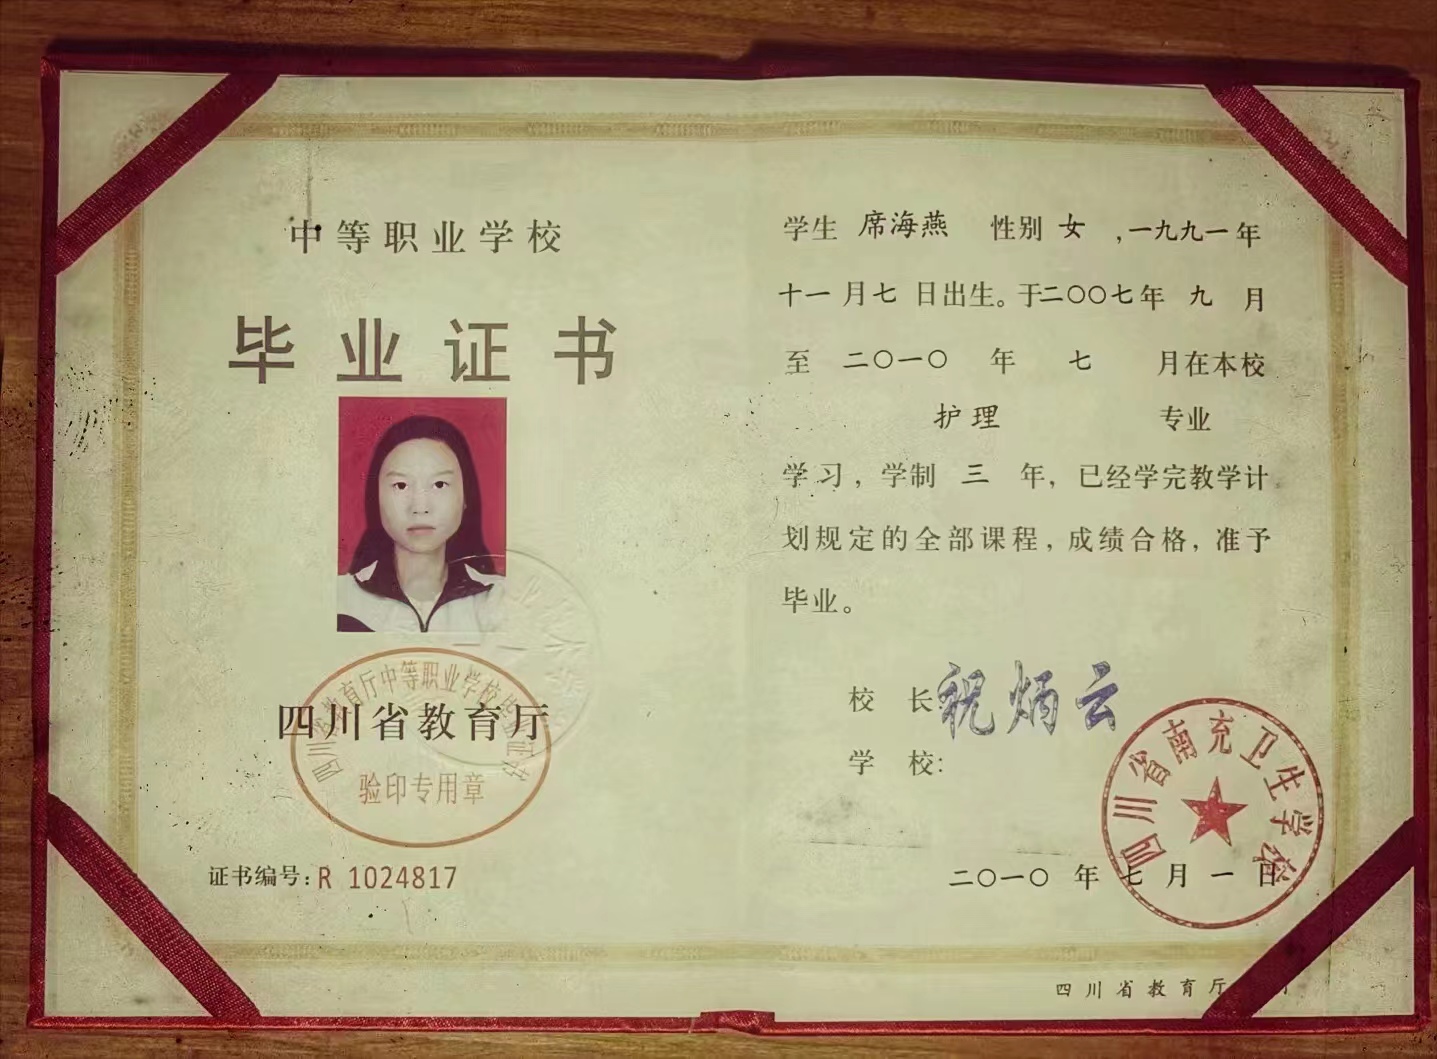 中等职业学校
毕业证书
四川省教育厅
验印专用章
证书编号：R 1024817
学生 席海燕 性别 女 ，一九九一年
十一月七日出生。于二〇〇七年 九 月
至 二〇一〇 年 七 月在本校
护理 专业
学习，学制 三 年，已经学完教学计
划规定的全部课程，成绩合格，准予
毕业。
校 长 祝炳云
学 校：
四川省南充卫生学校
二〇一〇 年 七 月 一 日
四川省教育厅